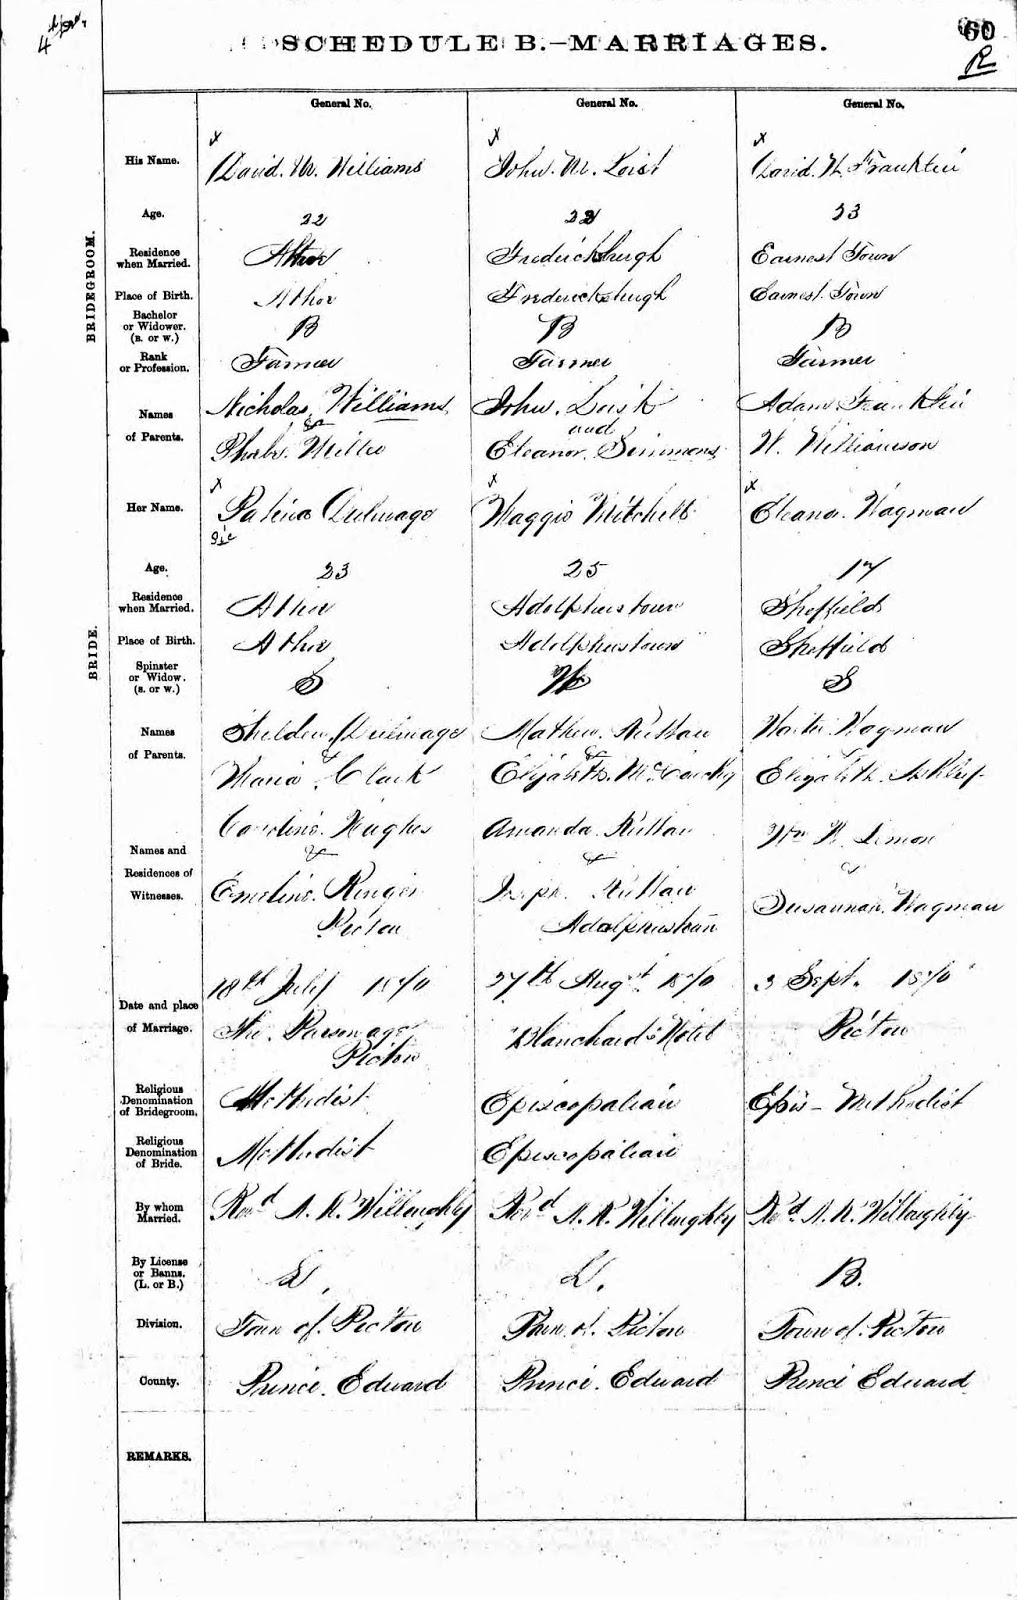 4
SCHEDULE B.—MARRIAGES.
60
R
General No. General No. General No.
BRIDEGROOM.
His Name. David. W. Williams John. W. Loist David. W. Franklin
Age. 22 23
Residence
when Married. Athol Fredericksburgh Earnest Town
Place of Birth. Athol Fredericksburgh Earnest Town
Bachelor
or Widower.
(B. or W.) B B B
Rank
or Profession. Farmer Farmer Farmer
Names Nicholas Williams John. Loist Adam Franklin
& and
of Parents. Phebe. Miller Eleanor. Simmons W. Williamson
BRIDE.
Her Name. Patena Dulmage Maggie Mitchell Eleanor. Wagman
Sic
Age. 23 25 17
Residence
when Married. Athol Adolphustown Sheffield
Place of Birth. Athol Adolphustown Sheffield
Spinster
or Widow.
(S. or W.) S W S
Names Sheldon Dulmage Mathew. Ruttan Wagman
of Parents. & &
Maria Clark Elizabeth. Elizabeth
Caroline. Hughes Amanda. Ruttan Wm
Names and & & &
Residences of
Witnesses. Emeline. Joseph Ruttan Susannah. Wagman
Picton Adolphustown
18th July 1870 27th Augt 1870 3 Sept. 1870
Date and place
of Marriage. The Parsonage Blanchard's Hotel Picton
Picton
Religious
Denomination
of Bridegroom. Methodist Episcopalian Epis - Methodist
Religious
Denomination
of Bride. Methodist Episcopalian
By whom
Married. Revd A. R. Willoughby Revd A. R. Willoughby Revd A. R. Willoughby
By License
or Banns.
(L. or B.) L. L. B.
Division. Town of Picton Town of Picton Town of Picton
County. Prince Edward Prince Edward Prince Edward
REMARKS.